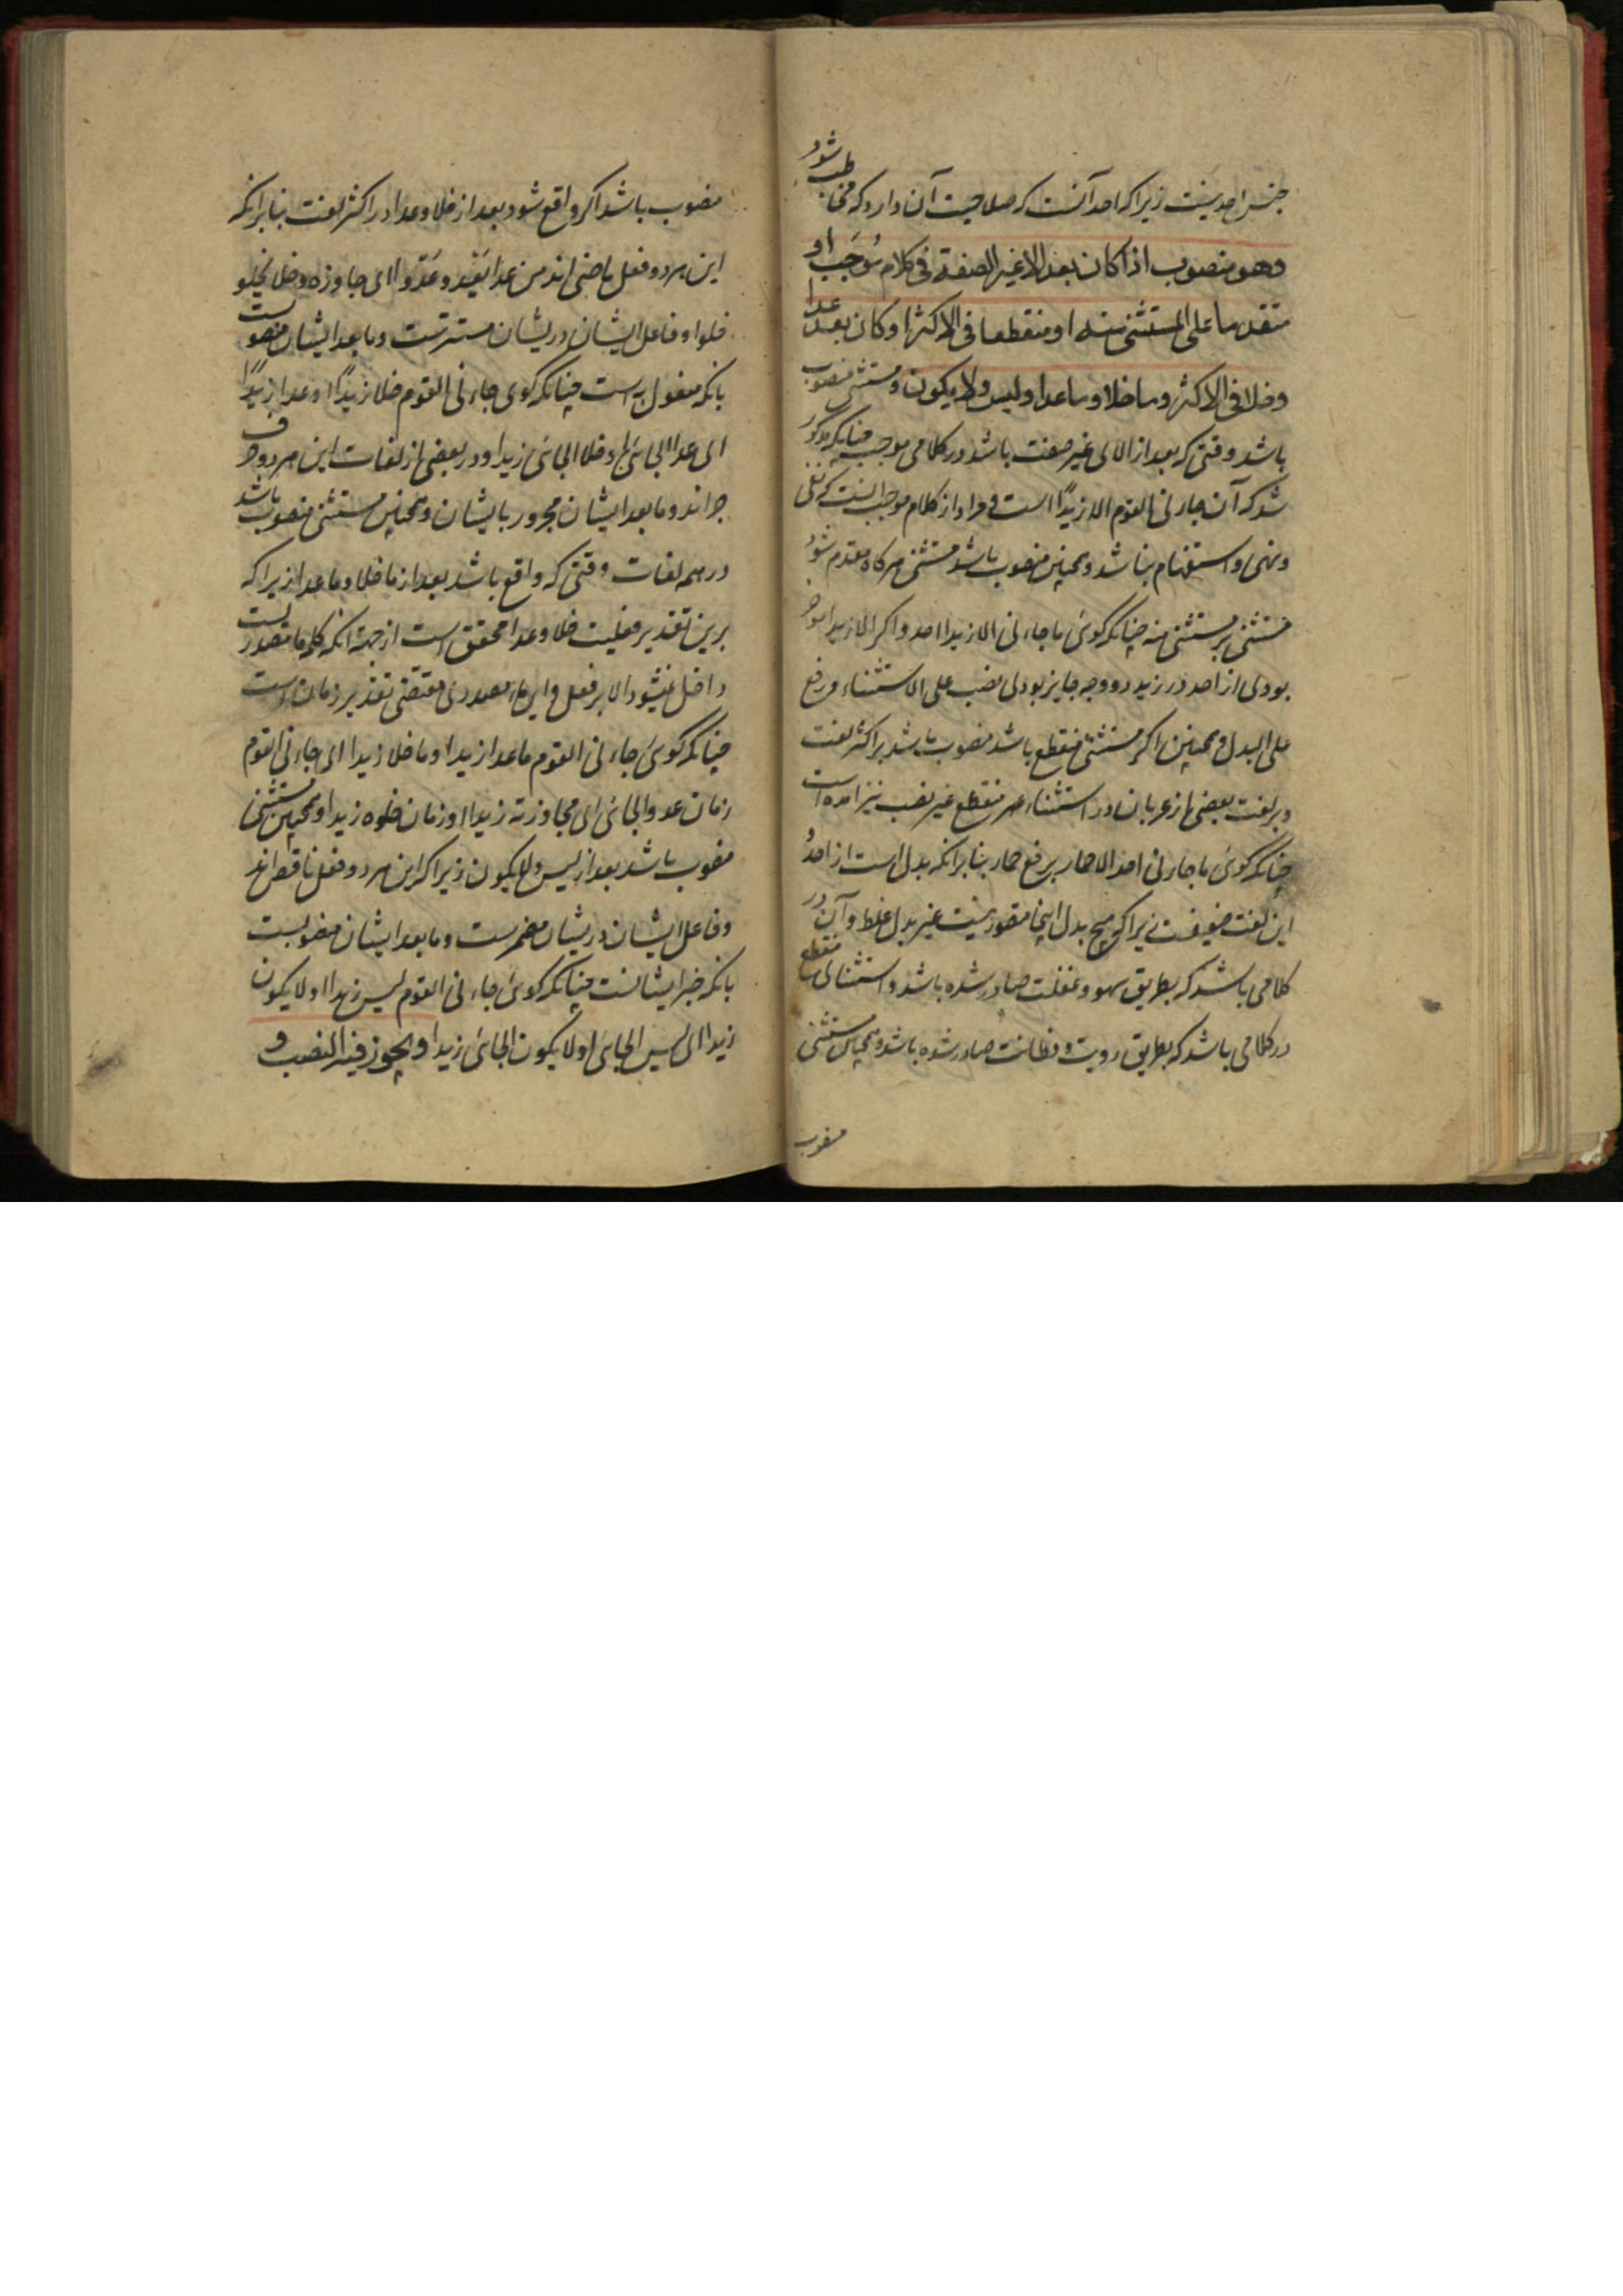 جنس احد نیست زیرا که احد آنست که صلاحیت آن دارد که مخاطب شود
وهو منصوب اذا كان بعد الا غير الصفة في كلام مُوجَب او
متقدما على المستثنى منه او منقطعا في الاكثر او كان بعد عدا
وخلا في الاكثر وما خلا وما عدا وليس ولا يكون و مستثنی منصوب
باشد وقتی که بعد از الای غیر صفت باشد در کلامی موجب چنانکه مذکور
شد که آن جاءنی القوم الا زیدًا است و مراد از کلام موجب آنست که نفی
ونهی واستفهام نباشد وهمچنین منصوب باشد مستثنی هرگاه مقدم شود
مستثنی بر مستثنی منه چنانکه گوئی ما جاءنی الا زیدا احد واگر الا زیدا مؤخر
بودی از احد در زید دو وجه جایز بودی نصب علی الاستثناء ورفع
علی البدل وهمچنین اگر مستثنی منقطع باشد منصوب باشد بر اکثر لغت
وبر لغت بعضی از عربان در استثناء منقطع غیر نصب نیز آمده است
چنانکه گوئی ما جاءنی احد الا حمار برفع حمار بنابر آنکه بدل است از احدُ
این لغت ضعیفست زیرا که هیچ بدل اینجا متصور نیست غیر بدل غلط وآن در
کلامی باشد که بطریق سهو وغفلت صادر شده باشد واستثنای منقطع
در کلامی باشد که بطریق رویت وفطانت صادر شده باشد وهمچنین مستثنی
منصوب
منصوب باشد اگر واقع شود بعد از خلا وعدا در اکثر لغت بنابر آنکه
این هر دو فعل ماضی اند من عدا یعدو عَدْوا ای جاوزه وخلا یخلو
خلوا وفاعل ایشان در ایشان مستترست وما بعد ایشان منصوبست
بانکه مفعول به است چنانکه گوی جاءنی القوم خلا زیدًا وعدا زیدًا
ای عدا الجائی او خلا الجائی زیدا ودر بعضی از لغات این هر دو حرف
جر اند وما بعد ایشان مجرور بایشان وهمچنین مستثنی منصوب باشد
در همه لغات وقتی که واقع باشد بعد از ما خلا وما عدا زیرا که
برین تقدیر فعلیت خلا وعدا محقق است از جهة آنکه کلمه ما مصدریست
داخل نمیشود الا بر فعل واین ماء مصدری مقتضی تقدیر زمان است
چنانکه گوئی جاءنی القوم ما عدا زیدا وما خلا زیدا ای جاءنی القوم
زمان عدو الجائی ای مجاوزته زیدا او زمان خلوه زیدا وهمچنین مستثنی
منصوب باشد بعد از لیس ولا یکون زیرا که این هر دو فعل ناقص اند
وفاعل ایشان در ایشان مضمرست وما بعد ایشان منصوبست
بانکه خبر ایشانست چنانکه گوئی جاءنی القوم لیس زیدا او لا یکون
زیدا ای لیس الجائی او لا یکون الجائی زیدا ويجوز فيه النصب و